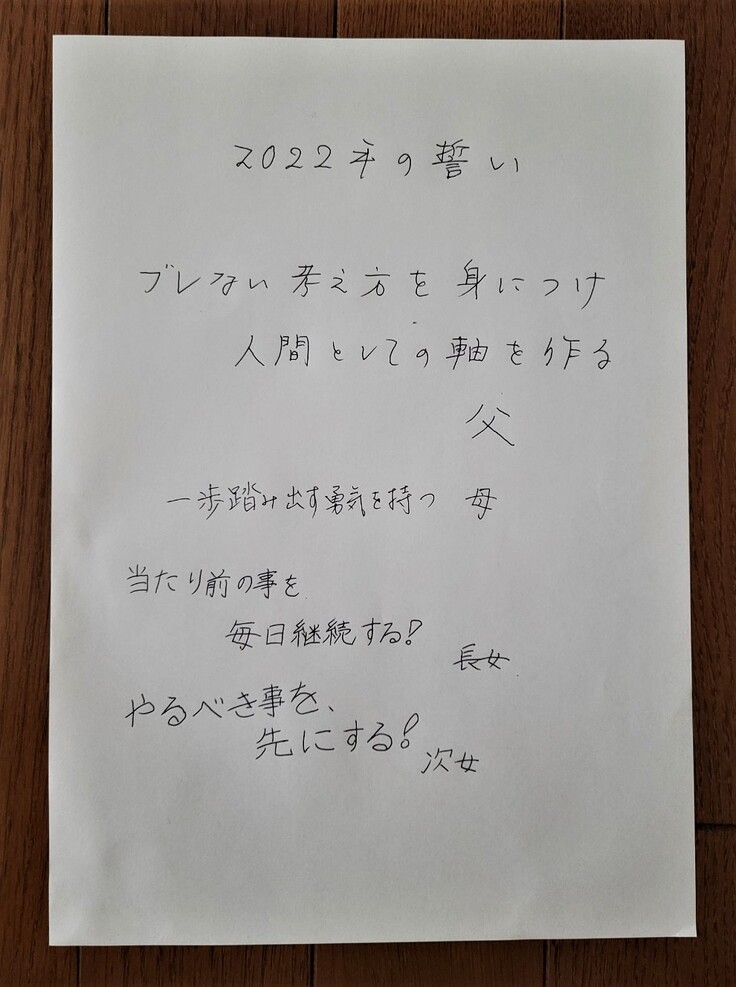 2022年の誓い
ブレない考え方を身につけ
人間としての軸を作る
父
一歩踏み出す勇気を持つ 母
当たり前の事を
毎日継続する!
長女
やるべき事を、
先にする!
次女